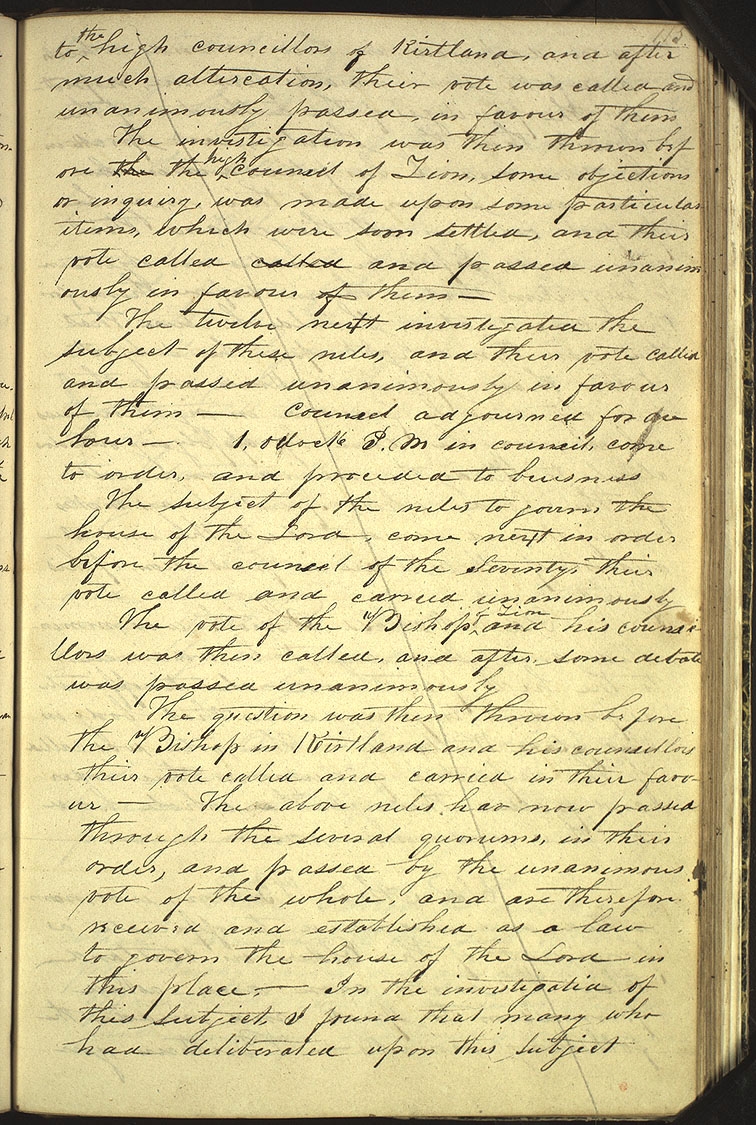 to the high councillors of Kirtland, and after
much altercation, their vote was called and
unanimously passed, in favour of them
The investigation was then thrown bef
ore the the high council of Zion, some objections
or inquiry, was made upon some particular
items, which were soon settled, and their
vote called called and passed unanim
ously in favour of them—
The twelve next investigated the
subject of these rules, and their vote called
and passed unanimously in favour
of them — Council adjourned for one
hour —. 1, oclock P. M in council, come
to order, and proceded to buisness
The subject of the rules to govern the
house of the Lord, come next in order
before the council of the Seventy, their
vote called and carried unanimously
The vote of the Bishop in Zion and his counsel
lors was then called, and after, some debate
was passed unanimously
The question was then thrown before
the Bishop in Kirtland and his counsellors
their vote called and carried in their favo-
ur — The above rules hav now passed
through the several quorums, in their
order, and passed by the unanimous
vote of the whole, and are therefore
received and established as a law
to govern the house of the Lord in
this place,— In the investigatid of
this subject, I found that many who
had deliberated upon this subject